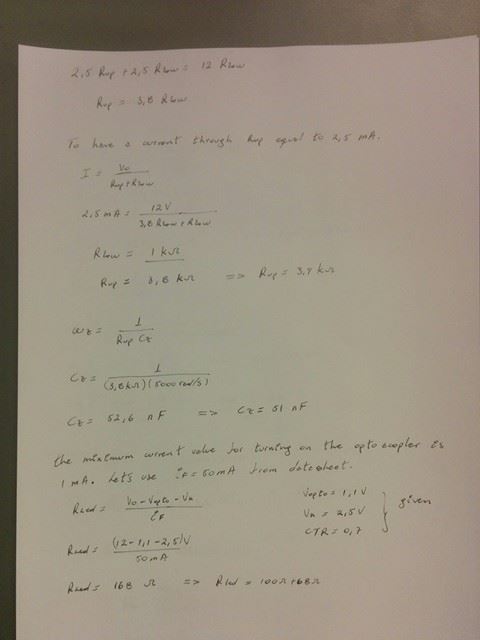 2,5 Rup + 2,5 Rlow = 12 Rlow
Rup = 3,8 Rlow
To have a current through Rup equal to 2,5 mA.
I = Vo / Rup+Rlow
2,5 mA = 12V / 3,8 Rlow + Rlow
Rlow = 1 kΩ
Rup = 3,8 kΩ => Rup = 3,9 kΩ
ωz = 1 / Rup Cz
Cz = 1 / (3,8kΩ)(5000 rad/s)
Cz = 52,6 nF => Cz = 51 nF
the minimum current value for turning on the optocopler is
1 mA. Let's use iF = 50mA from datasheet.
Rled = Vo - Vopto - Vk / iF
Vopto = 1,1 V
Vk = 2,5V
CTR = 0,7
given
Rled = (12-1,1-2,5)V / 50mA
Rled = 168 Ω => Rled = 100Ω+68Ω